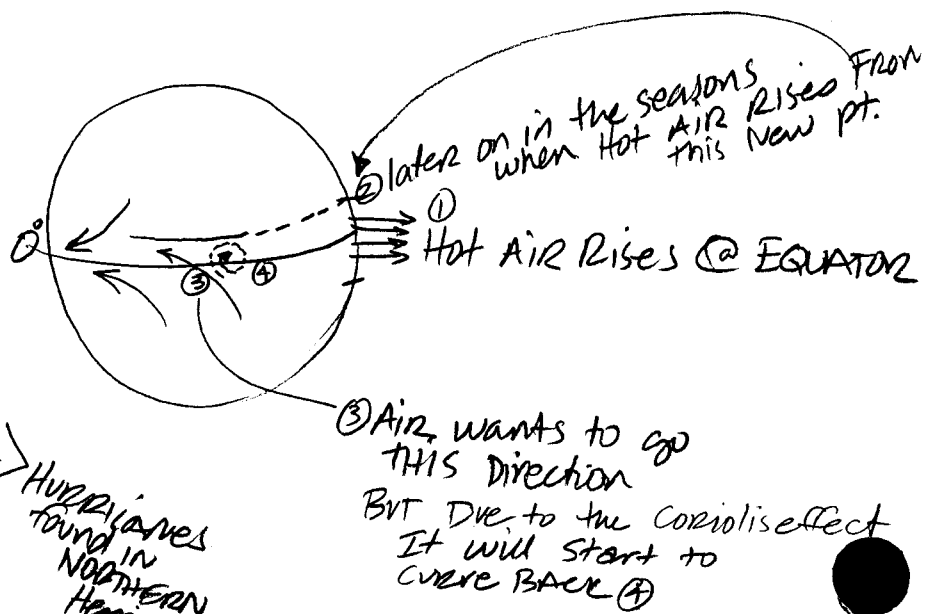 ② later on in the seasons
when Hot AIR Rises From
this New pt.
①
Hot AIR Rises @ EQUATOR
0°
③ ④
③ AIR wants to go
THIS Direction
BUT Due to the Coriolis effect
It will Start to
Curve BACK ④
Hurricanes
found in
NORTHERN